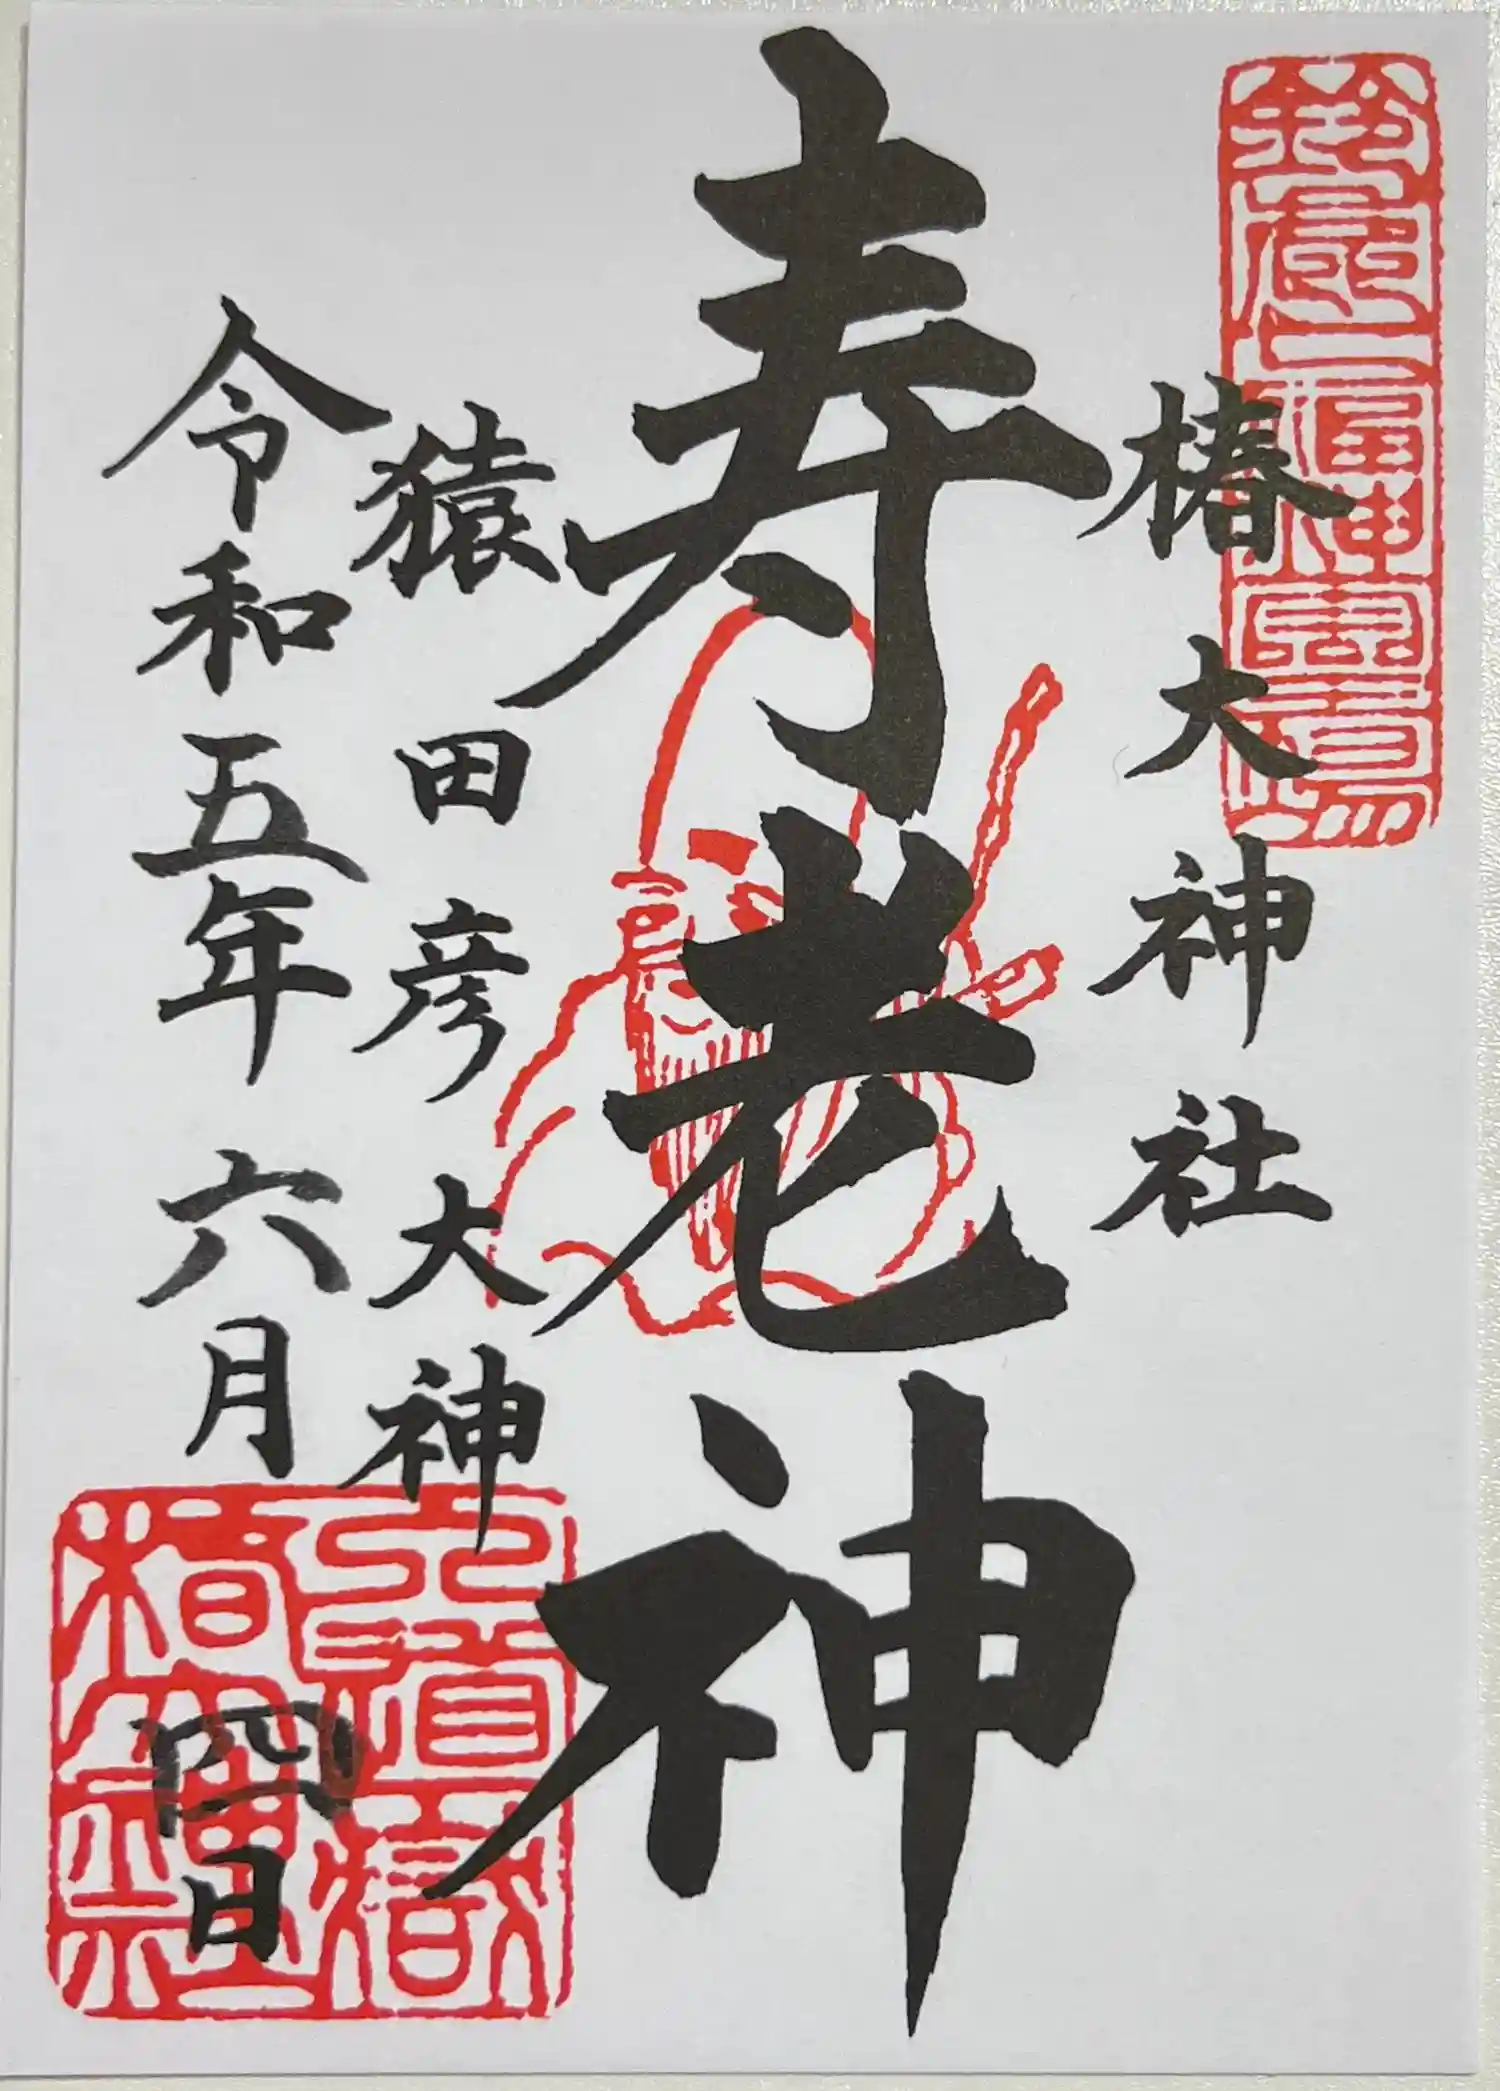 鈴鹿七福神霊場
椿大神社
寿老神
猿田彦大神
令和五年六月四日